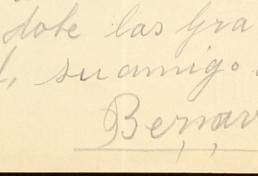 dote las Gra
su amigo
Bernar